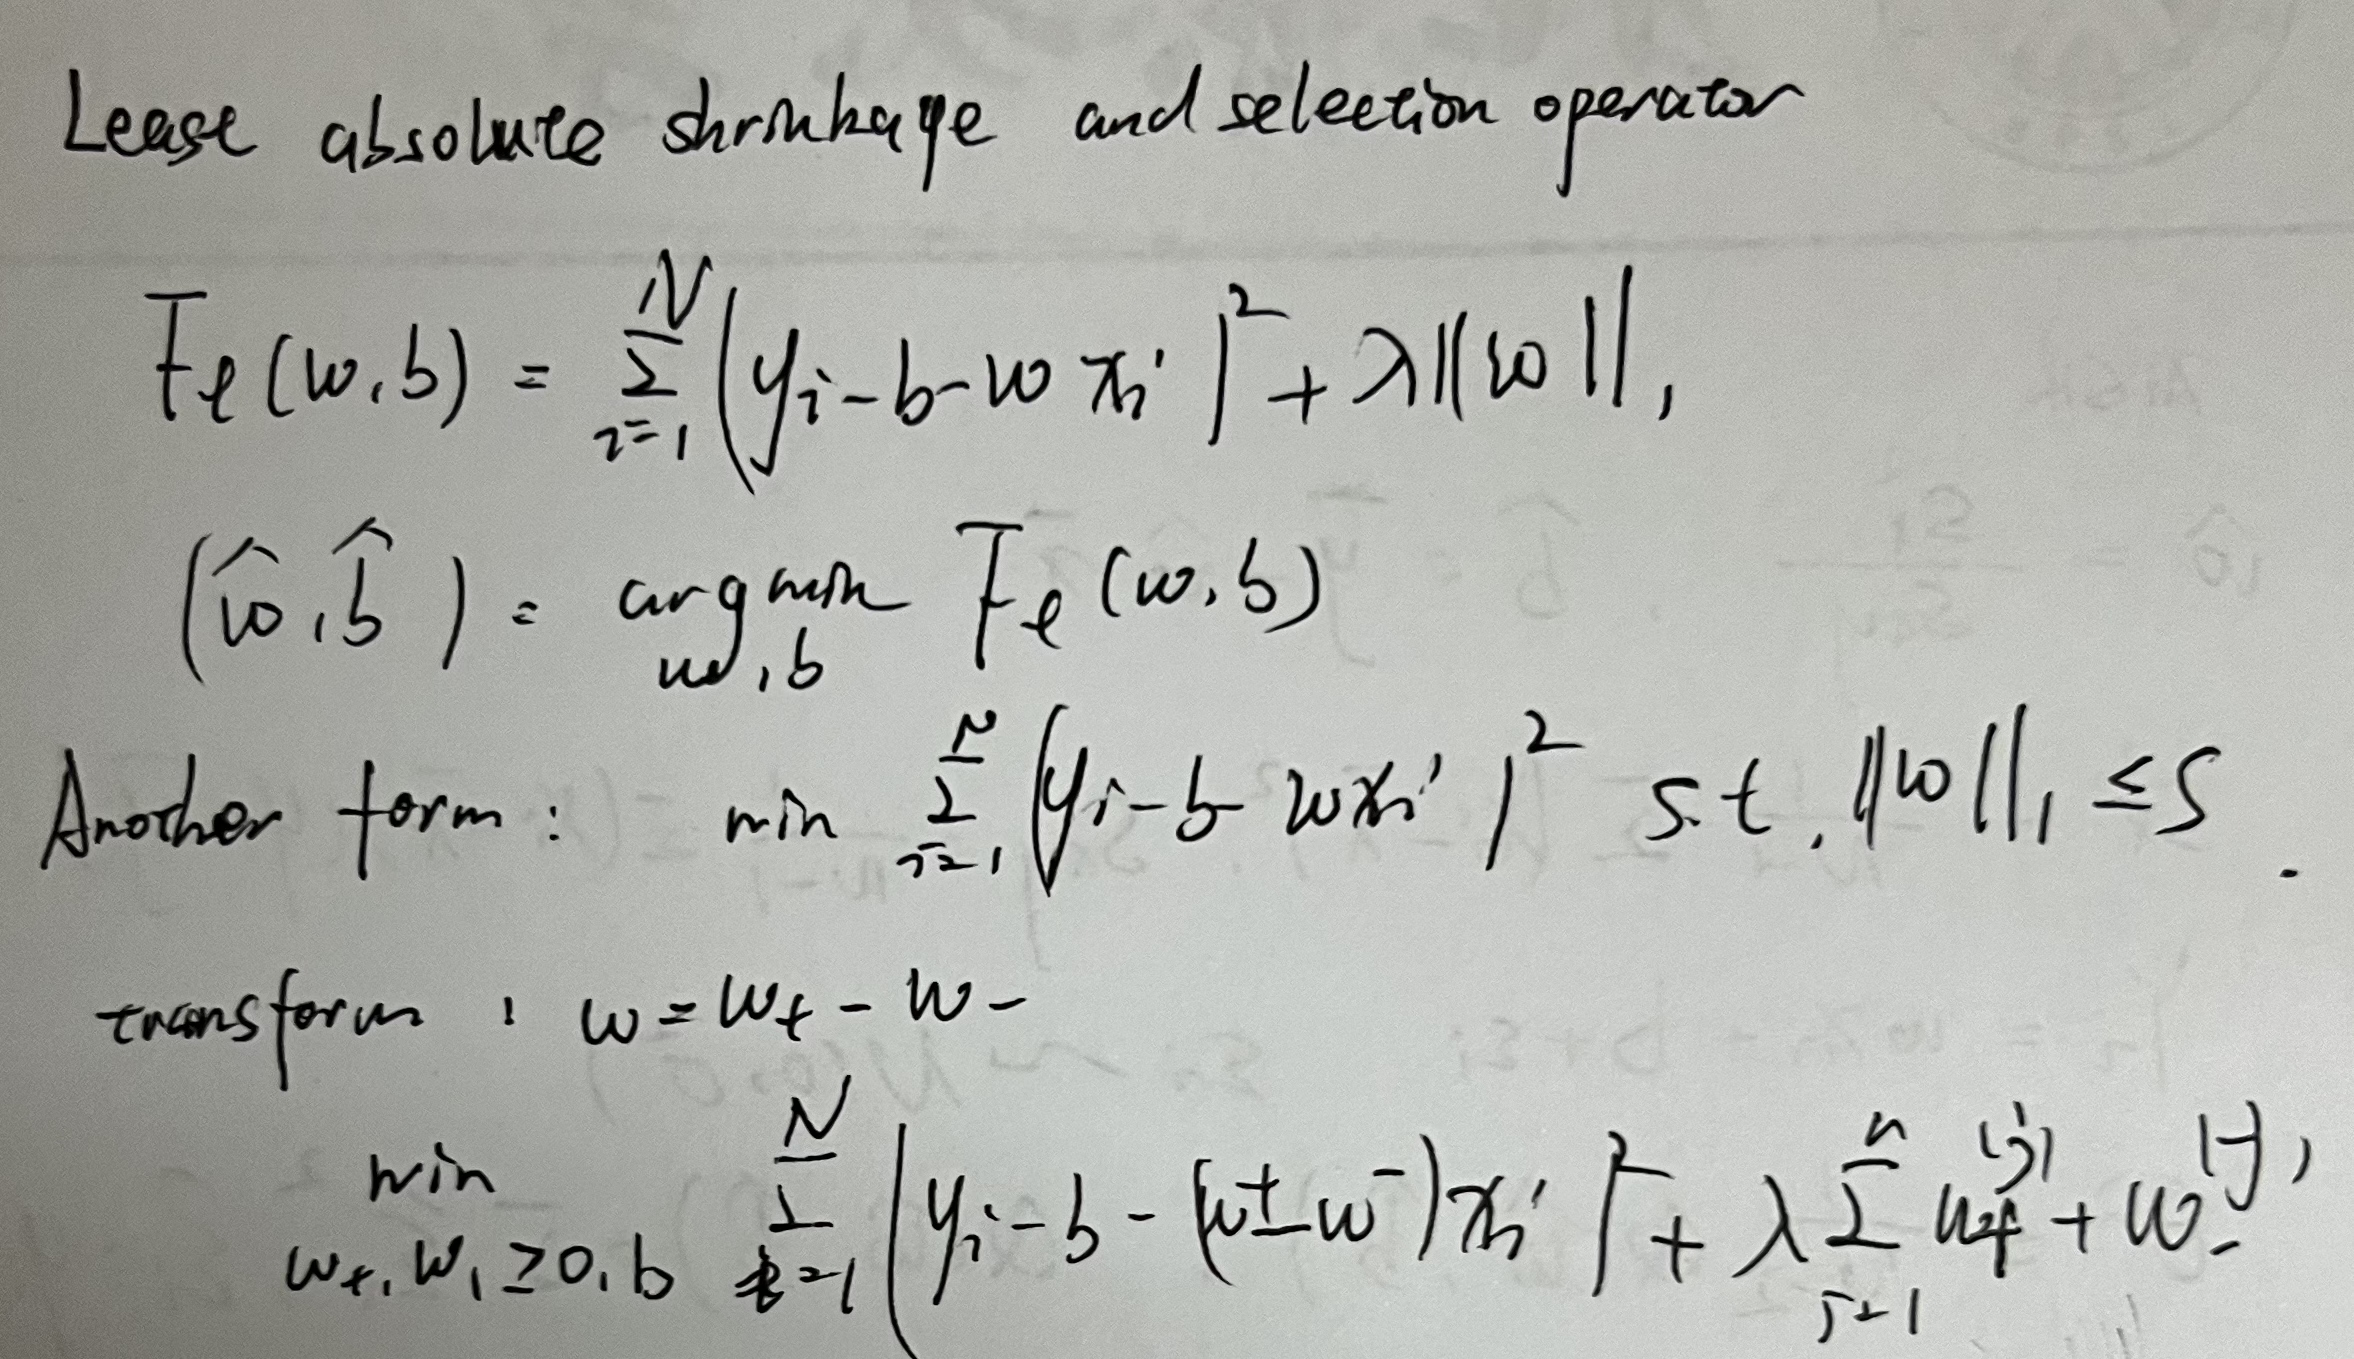 Lease absolute shrinkage and selection operator
Fℓ(w,b) = Σ_{i=1}^{N} (y_i - b - w x_i')^2 + λ||w||_1
(ŵ, b̂) = argmin_{w,b} Fℓ(w,b)
Another form: min Σ_{i=1}^{N} (y_i - b - w x_i')^2 s.t. ||w||_1 ≤ S.
transform: w = w_+ - w_-
min_{w_+, w_1 ≥ 0, b} Σ_{i=1}^{N} (y_i - b - (w^+ - w^-) x_i')^2 + λ Σ_{j=1}^{n} w_+^{(j)} + w_-^{(j)}